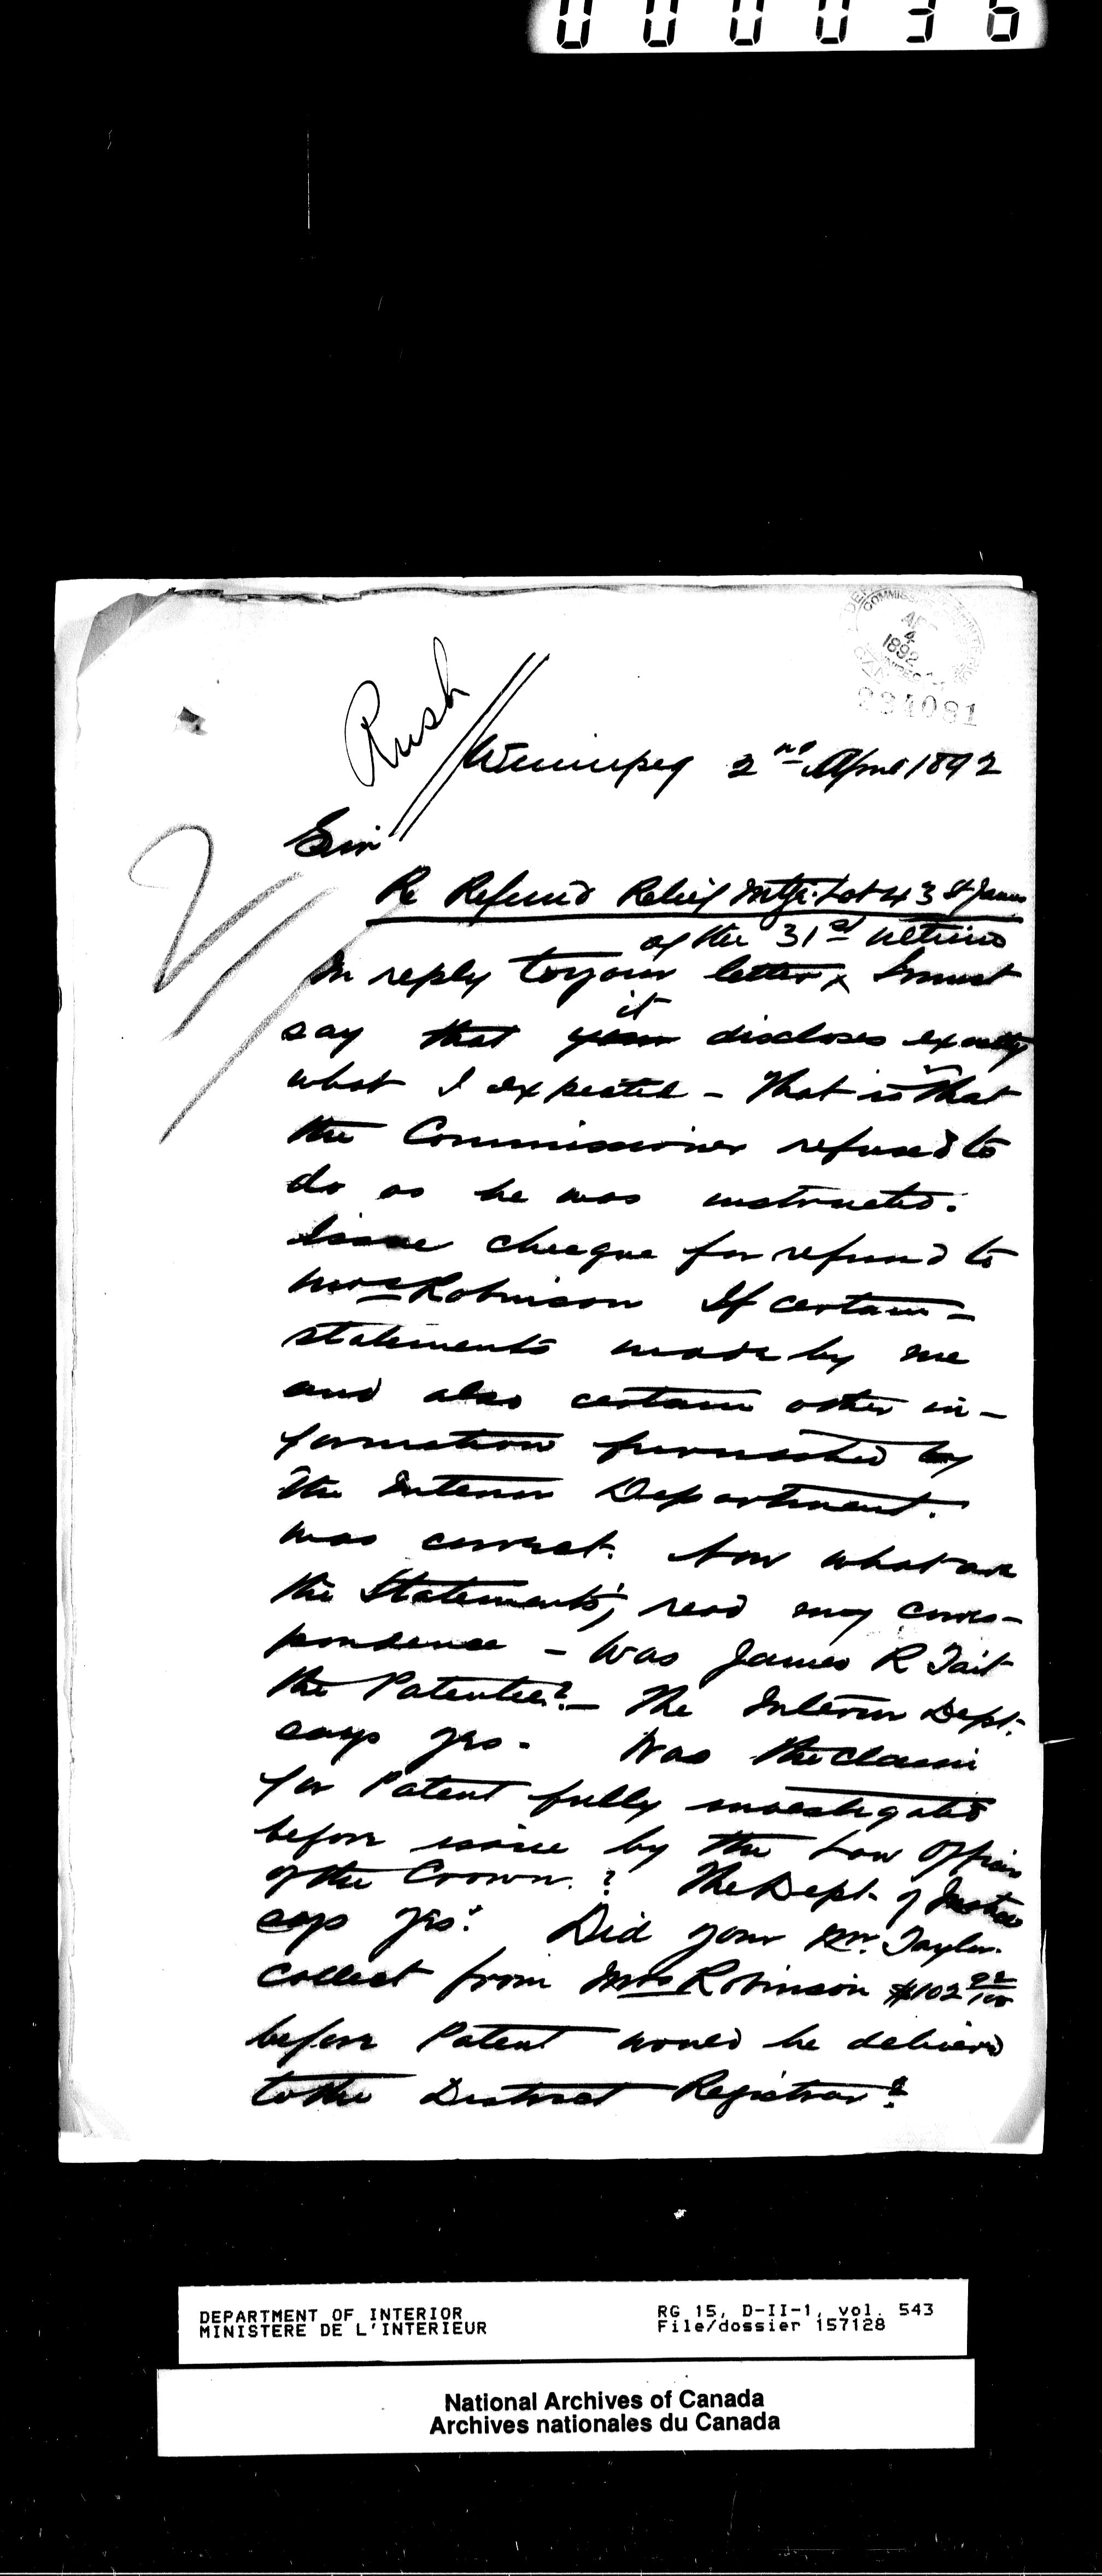 000036
APR
4
1892
234081
Rush
Winnipeg 2nd April 1892
Sir
Re Refund Relief Mtge. Lot 43 St James
of the 31st ultimo
In reply to your letter x I must
it
say that your discloses exactly
what I expected - That is that
the Commissioner refused to
do as he was instructed.
Issue cheque for refund to
Mrs Robinson If certain
statements made by me
and also certain other in-
formation furnished by
the Interior Department.
was correct. Now what are
the Statements; read my corres-
pondence - Was James R Tait
the Patentee? - The Interior Dept.
says yes. Was the claim
for Patent fully investigated
before issue by the Law Officers
of the Crown.? The Dept. of Justice
says yes. Did your Mr. Taylor.
collect from Mrs Robinson $102 22/100
before Patent would be delivered
to the District Registrar?
DEPARTMENT OF INTERIOR
MINISTERE DE L'INTERIEUR
RG 15, D-II-1, vol. 543
File/dossier 157128
National Archives of Canada
Archives nationales du Canada